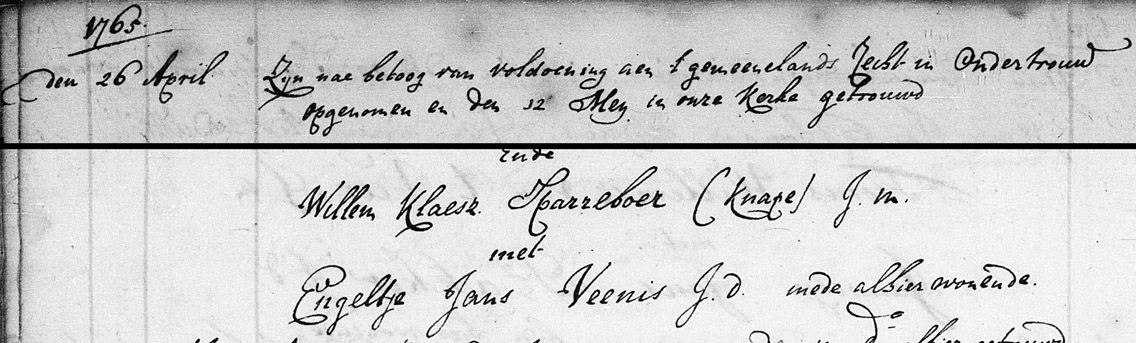 1765.
den 26 April Zijn nae betoog van voldoening aen 't gemeenelands Recht in Ondertrouw
opgenomen en den 12 Mey in onze Kerke getrouwd
ende
Willem Klaesz. Harreboer (Knape) J. m.
met
Engeltje Jans Veenis J. d. mede alhier wonende.
do alhier getrouwd